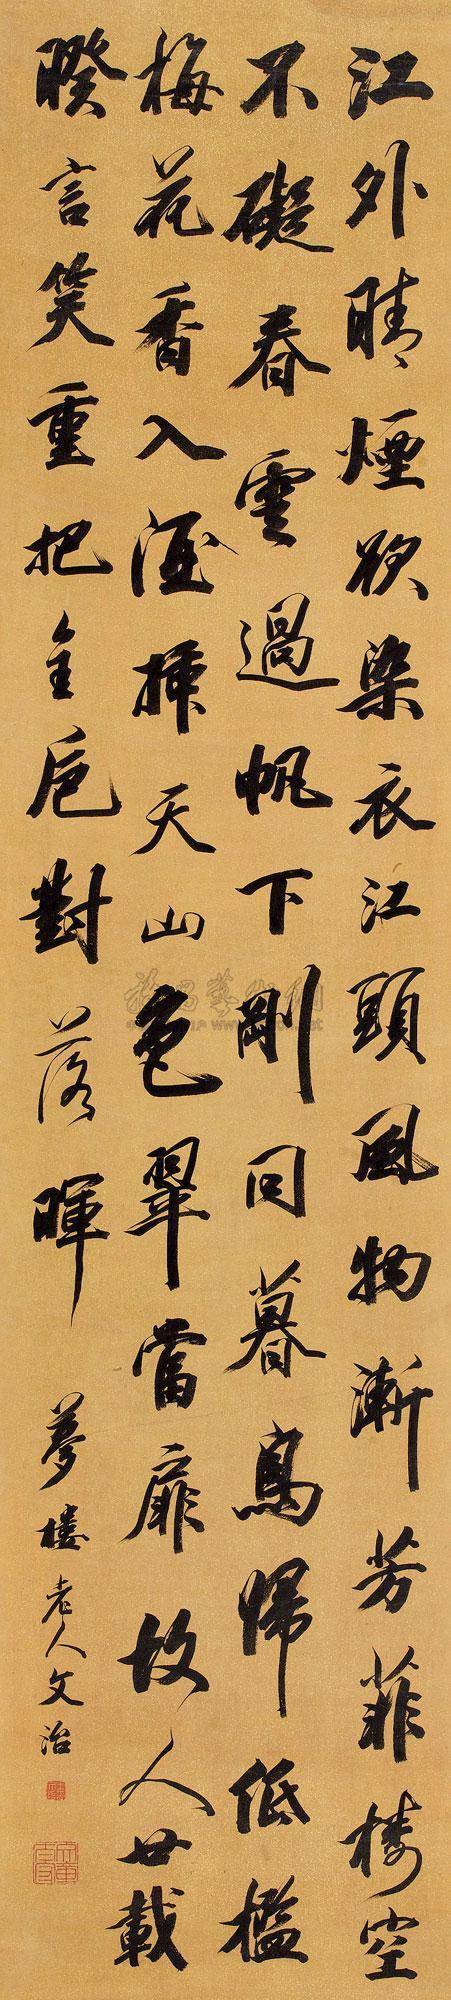 江外晴煙欲染衣江頭風物漸芳菲樓空
不礙春雲過帆下剛同暮鳥歸低檻
梅花香入酒掃天山色翠當扉故人廿載
暌言笑重把金卮對落暉
夢樓老人文治